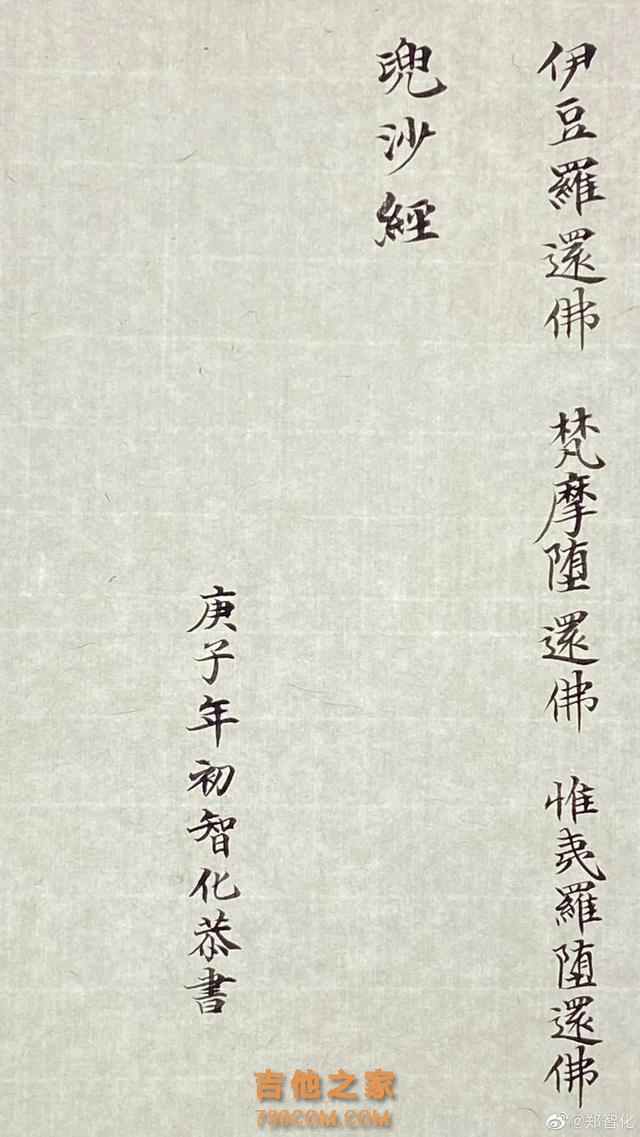 伊豆羅還佛 梵摩堕還佛 惟夷羅堕還佛
兜沙經
庚子年初智化恭書
吉他之家
798COM.COM
@郑智化